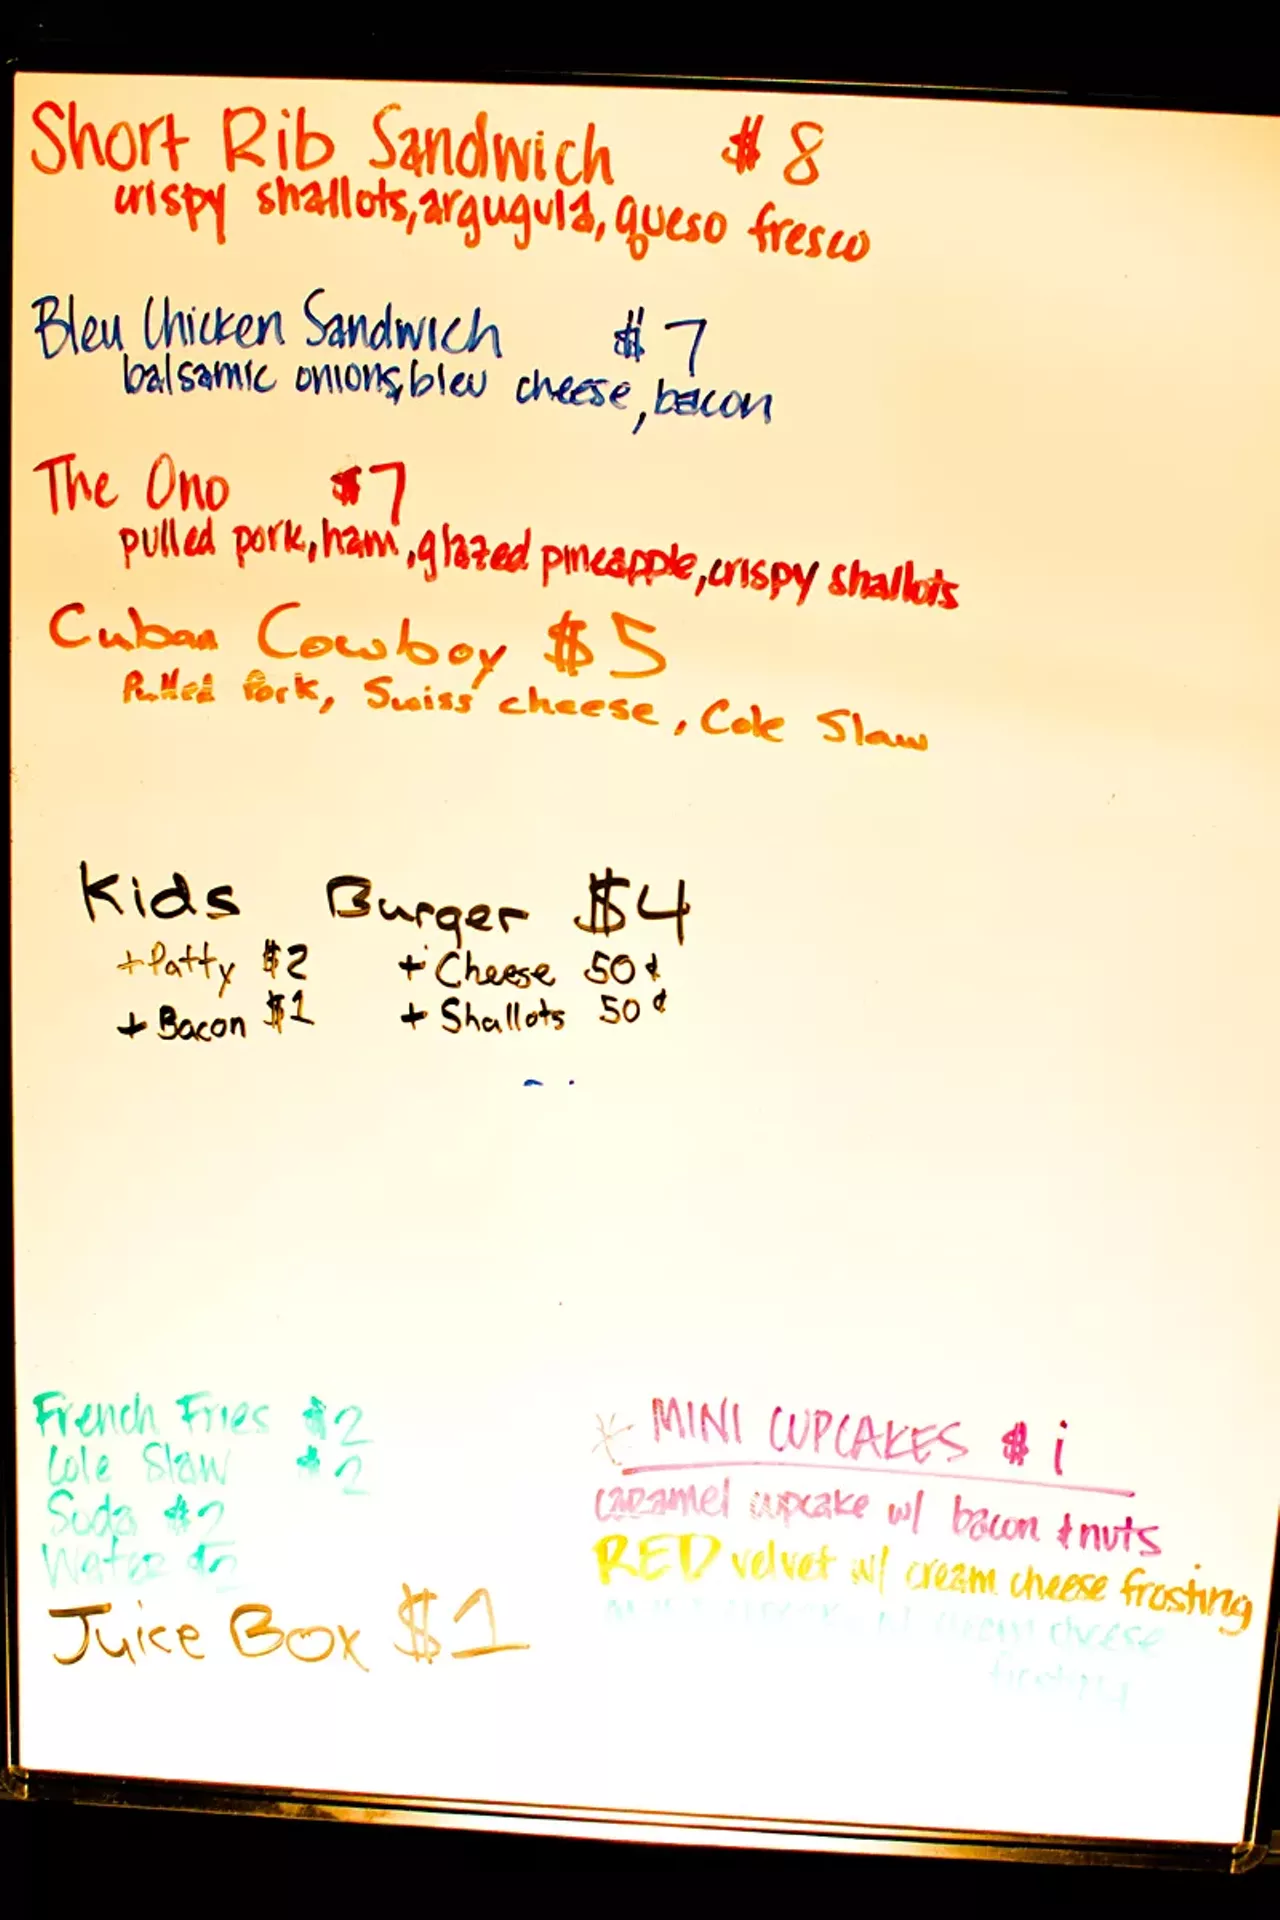 Short Rib Sandwich $8
crispy shallots, argugula, queso fresco
Bleu Chicken Sandwich $7
balsamic onions, bleu cheese, bacon
The Ono $7
pulled pork, ham, glazed pineapple, crispy shallots
Cuban Cowboy $5
Pulled Pork, Swiss cheese, Cole Slaw
Kids Burger $4
+ Patty $2 + Cheese 50¢
+ Bacon $1 + Shallots 50¢
French Fries $2
Cole Slaw $2
Soda $2
Water $2
Juice Box $1
* MINI CUPCAKES $1
caramel cupcake w/ bacon & nuts
RED velvet w/ cream cheese frosting
w/ cream cheese
frosting